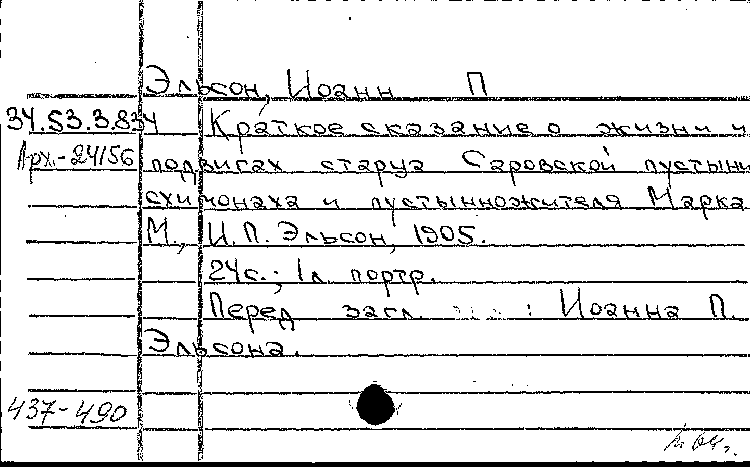 Эльсон, Иоанн П
34.53.3.834 Краткое сказание о жизни и
Арх.-24156 подвигах старца Саровской пустыни
схимонаха и пустынножителя Марка
М., И.П. Эльсон, 1905.
24с.; 1л портр.
Перед загл. : Иоанна П.
Эльсона.
437-490